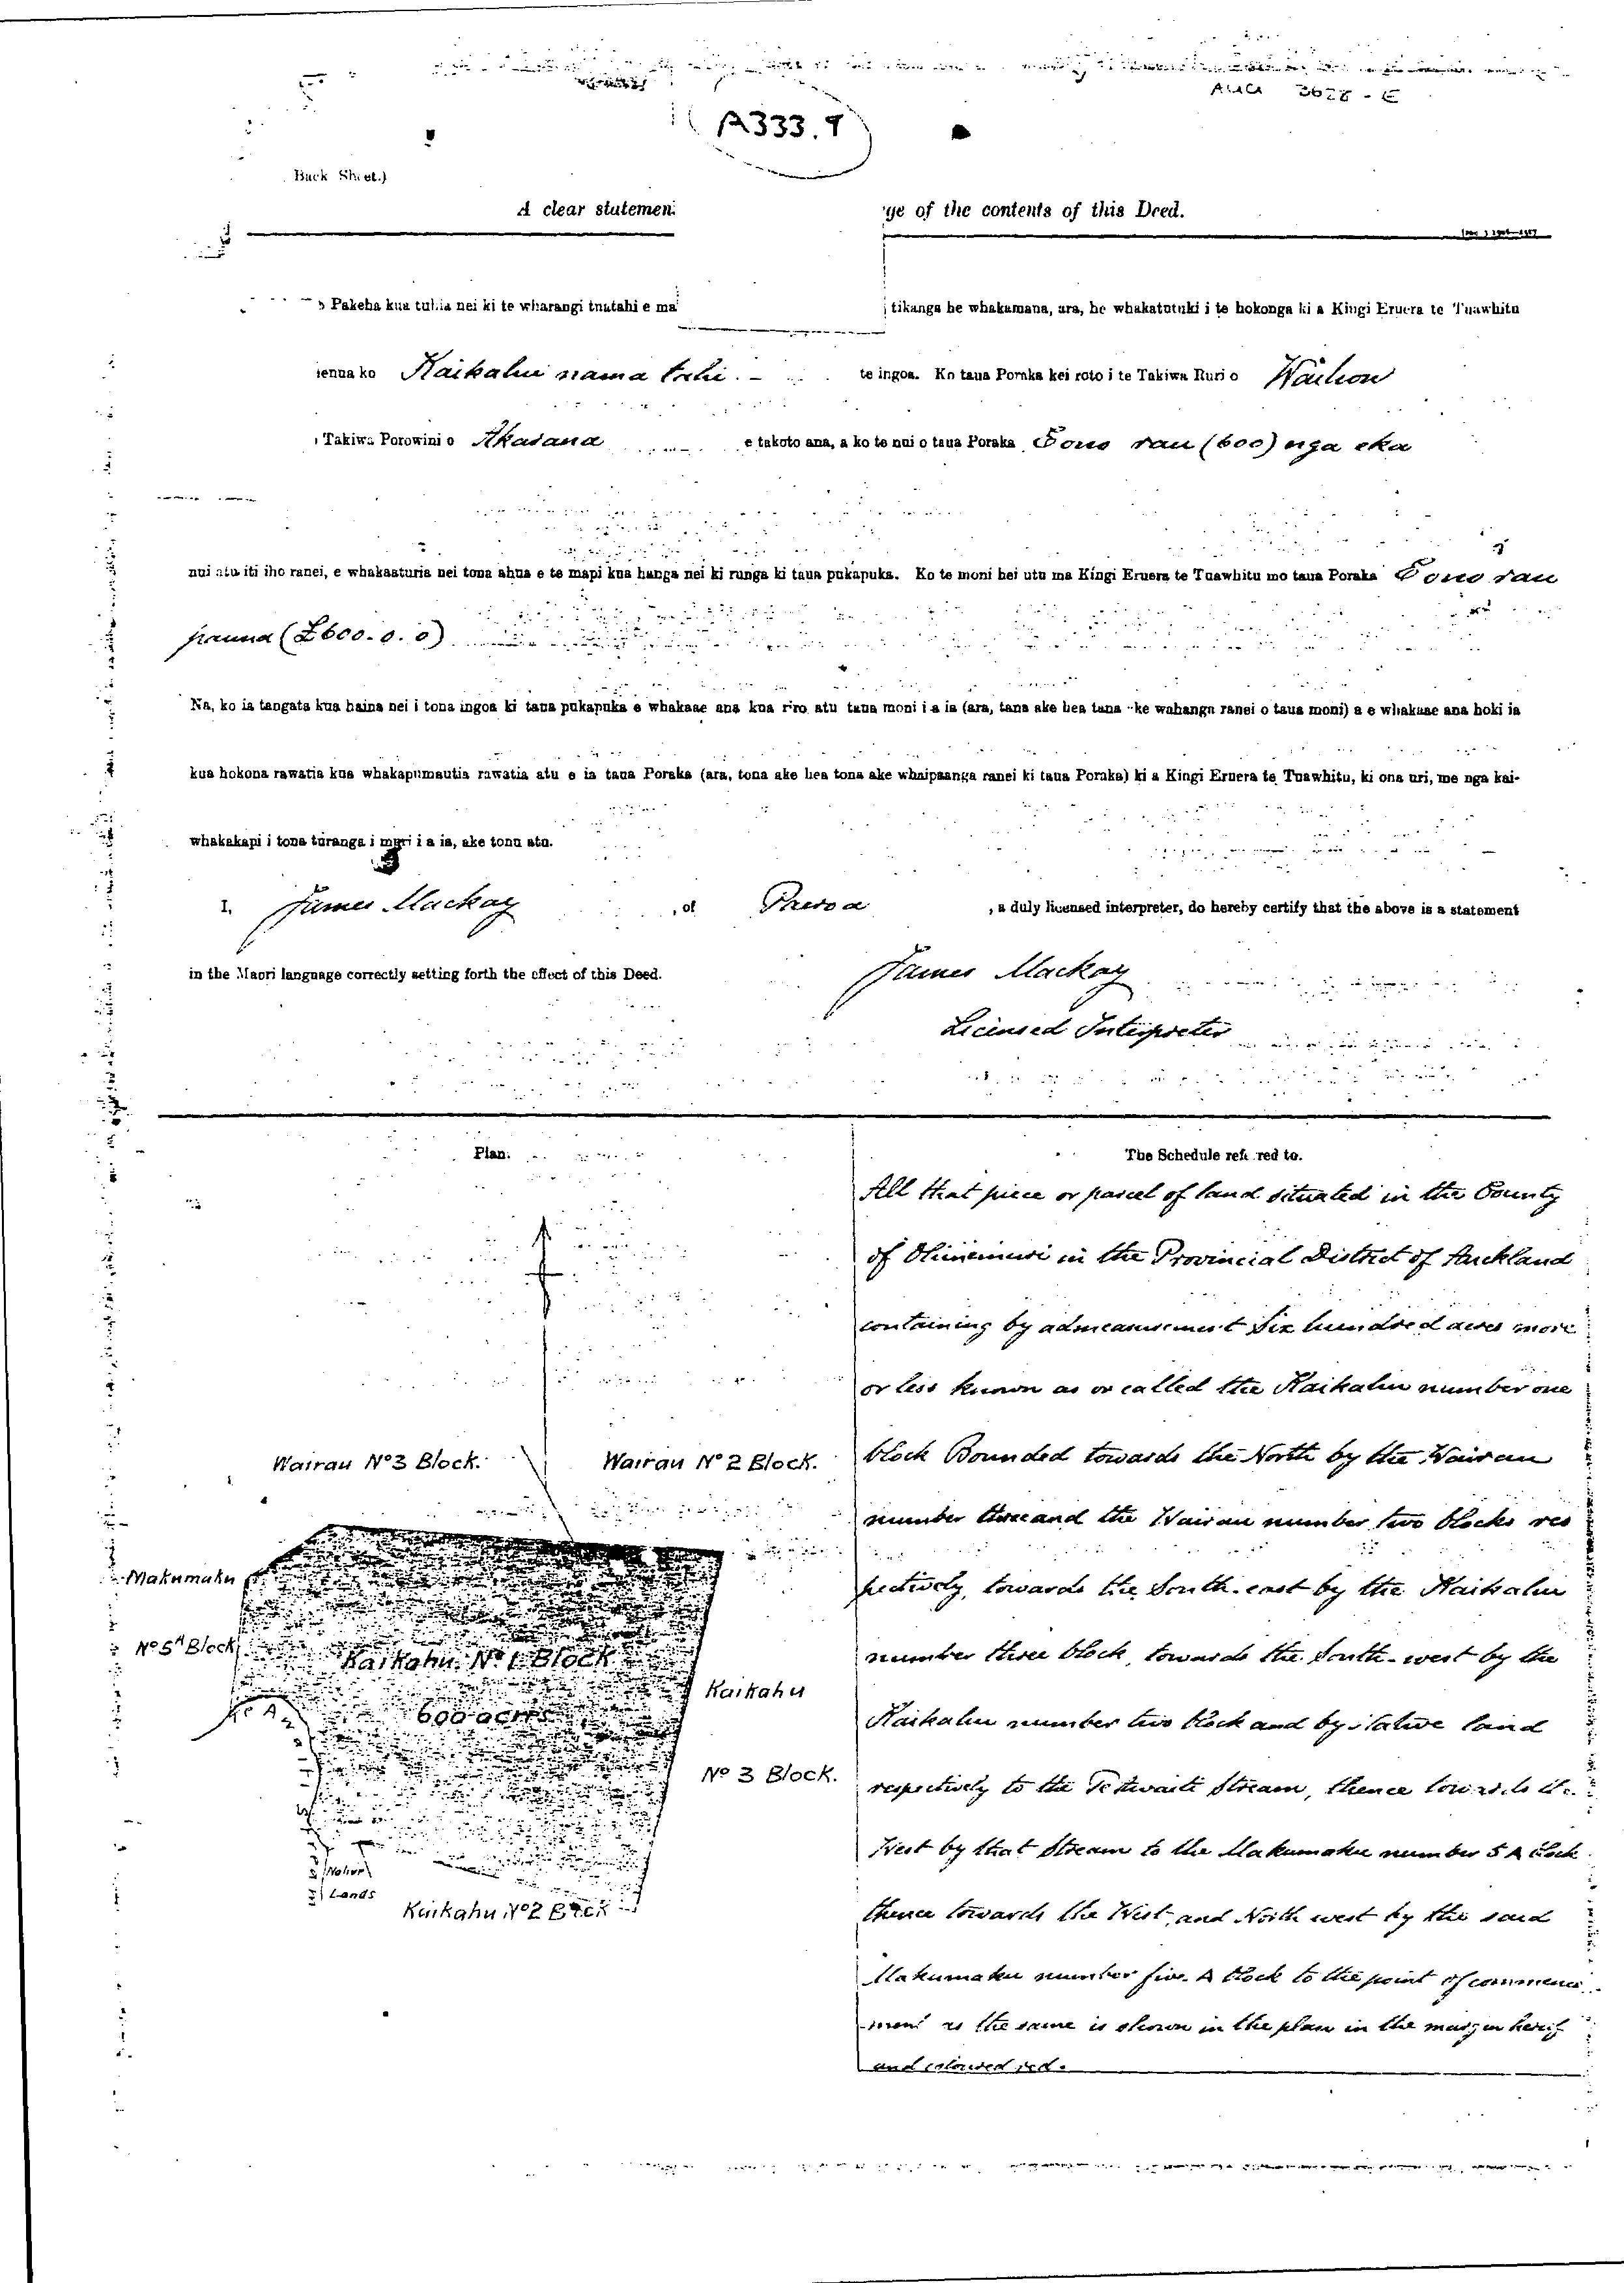 A333.9
Back Sheet.)
A clear statemen
ge of the contents of this Deed.
Pakeha kua tuhia nei ki te wharangi tuatahi e ma
tikanga he whakamana, ara, he whakatutuki i te hokonga ki a Kingi Eruera te Tuawhitu
ienna ko Kaikahu nama tahi. te ingoa. Ko taua Poraka kei roto i te Takiwa Ruri o Waihou
Takiwa Porowini o Akarana e takoto ana, a ko te nui o taua Poraka Ono rau (600) nga eka
nui atu iti iho ranei, e whakaaturia nei tona ahua e te mapi kua hanga nei ki runga ki taua pukapuka. Ko te moni hei utu ma Kingi Eruera te Tuawhitu mo taua Poraka Ono rau
pauna (£600. 0. 0)
Na, ko ia tangata kua haina nei i tona ingoa ki taua pukapuka e whakaae ana kua riro atu taua moni i a ia (ara, tana ake hea tana ake wahanga ranei o taua moni) a e whakaae ana hoki ia
kua hokona rawatia kua whakapumautia rawatia atu e ia taua Poraka (ara, tona ake hea tona ake whaipaanga ranei ki taua Poraka) ki a Kingi Eruera te Tuawhitu, ki ona uri, me nga kai-
whakakapi i tona turanga i muri i a ia, ake tonu atu.
I, James Mackay, of Paeroa, a duly licensed interpreter, do hereby certify that the above is a statement
in the Maori language correctly setting forth the effect of this Deed.
James Mackay
Licensed Interpreter
Plan.
Wairau No 3 Block.
Wairau No 2 Block.
Makumaku
No 5A Block
Kaikahu No 1 Block
600 acres
Kaikahu
No 3 Block.
Native
Lands
Kaikahu No 2 Block
The Schedule refe red to.
All that piece or parcel of land situated in the County
of Ohinemuri in the Provincial District of Auckland
containing by admeasurement Six hundred acres more
or less known as or called the Kaikahu number one
block Bounded towards the North by the Wairau
number three and the Wairau number two blocks res
pectively, towards the South-east by the Kaikahu
number three block, towards the South-west by the
Kaikahu number two block and by Native land
respectively to the Stream, thence towards the
West by that Stream to the Makumaku number 5 A block
thence towards the West, and North west by the said
Makumaku number five A block to the point of commence
ment as the same is shown in the plan in the margin hereof
and coloured red.